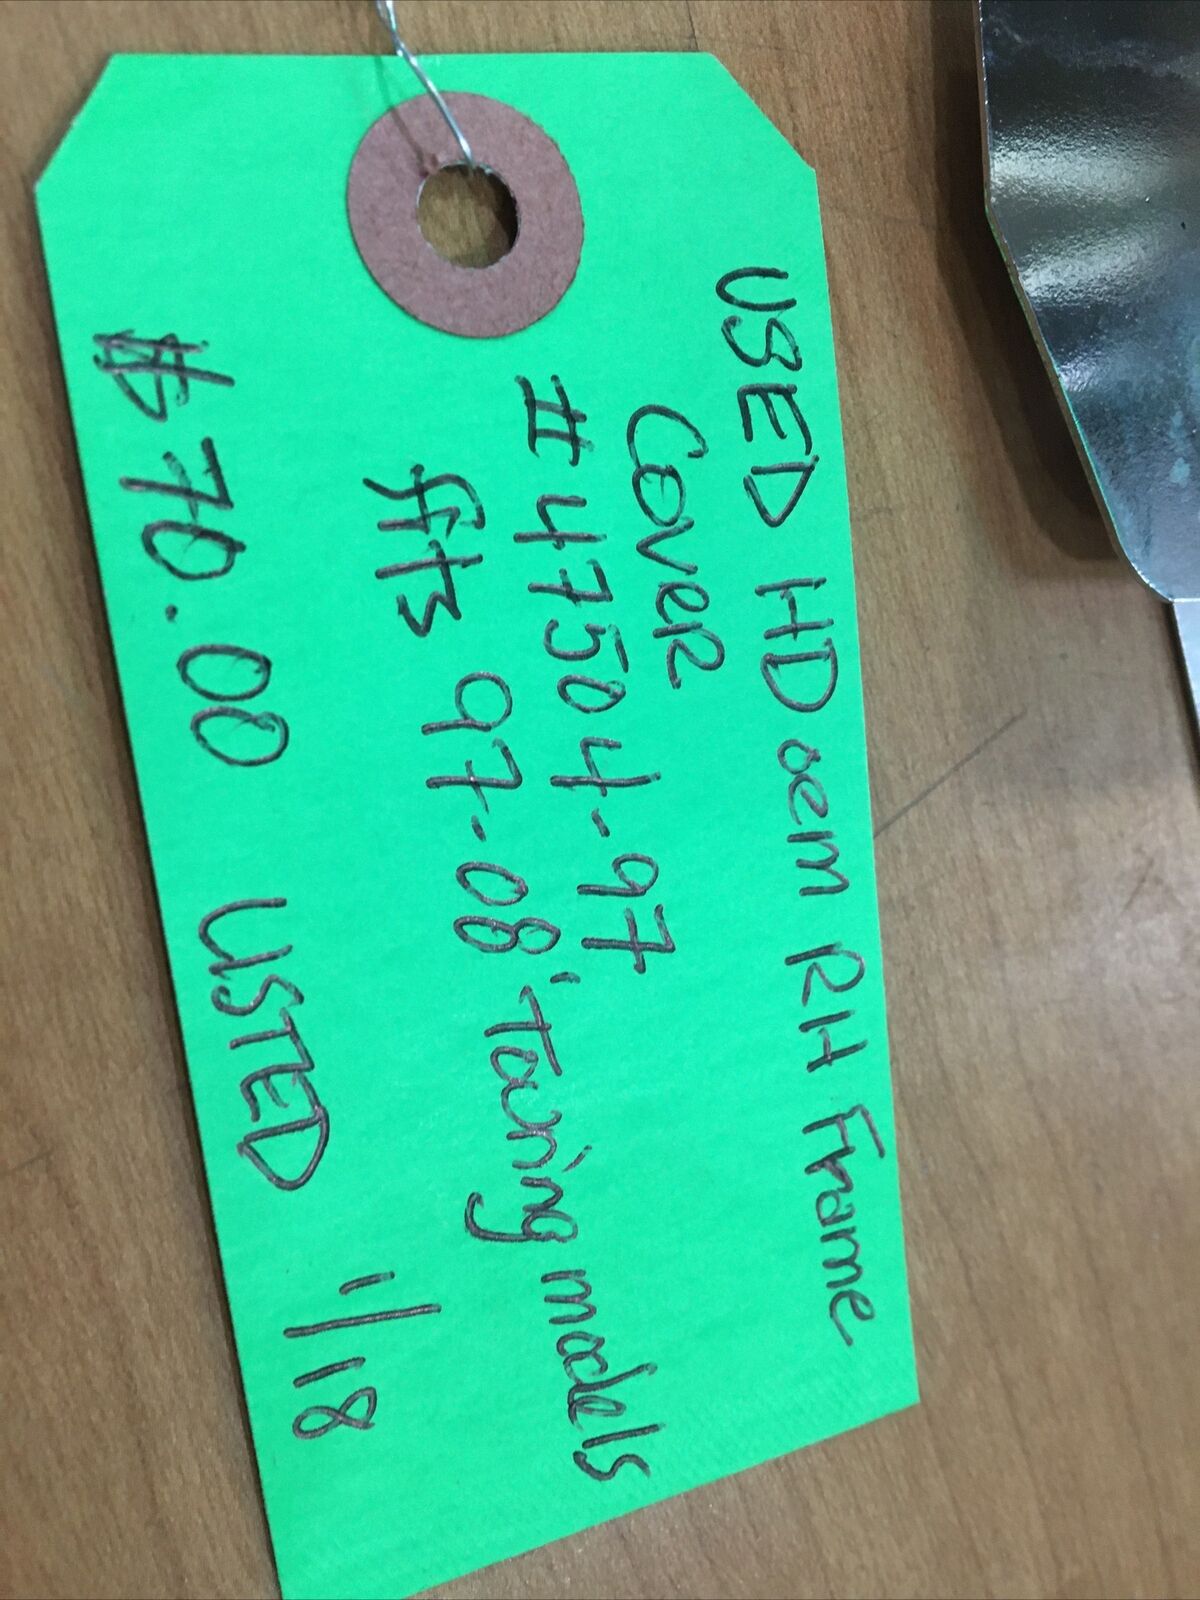 USED HD oem RH Frame
Cover
#47504-97
fits 97-08' Touring models
$70.00 USED 1/18